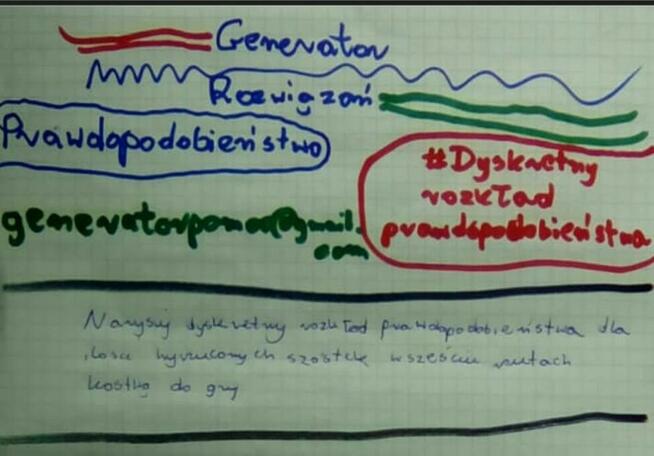 Generator
Rozwiązań
Prawdopodobieństwo
#Dyskretny
rozkład
prawdopodobieństwa
generatorpomoc@gmail.
com
Narysuj dyskretny rozkład prawdopodobieństwa dla
ilości wyrzuconych szóstek w sześciu rzutach
kostką do gry